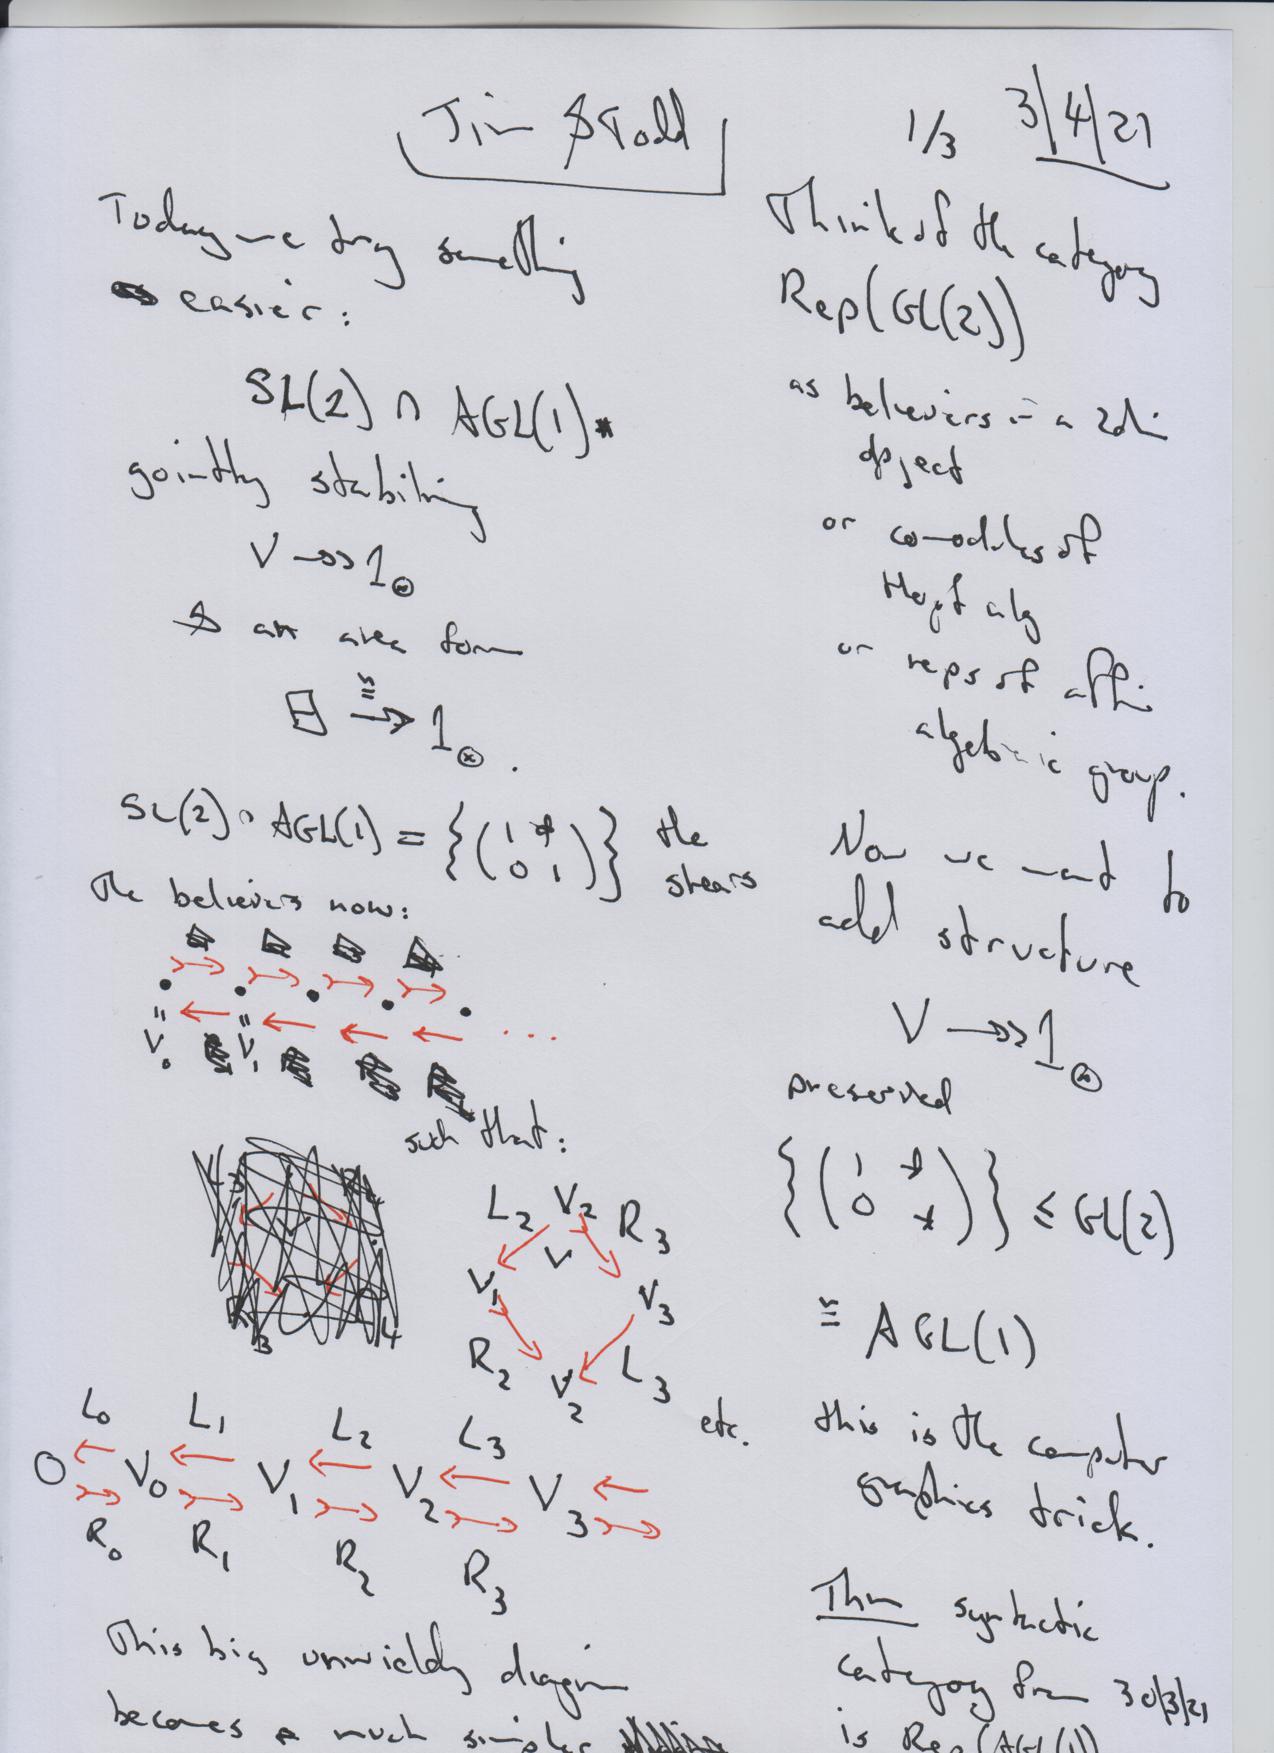 Jim & Todd
1/3 3/4/21
Today we try something
easier:
SL(2) ∩ AGL(1)
jointly stabilizing
V ↠ 1⊗
& an area form
≅
⊟ → 1⊗.
SL(2) ∩ AGL(1) = {(1 * / 0 1)} the
shears
The believers now:
V₀ V₁ ...
such that:
L₂ V₂ R₃
V₁ V₃
R₂ V₂ L₃
etc.
L₀ L₁ L₂ L₃
0 V₀ V₁ V₂ V₃
R₀ R₁ R₂ R₃
This big unwieldy diagram
becomes a much simpler
Think of the category
Rep(GL(2))
as believers in a 2dim
object
or comodules of
Hopf alg
or reps of affine
algebraic group.
Now we want to
add structure
V ↠ 1⊗
preserved
{(1 * / 0 *)} ≤ GL(2)
≅ AGL(1)
this is the computer
graphics trick.
Thm syntactic
category from 30/3/21
is Rep(AGL(1))